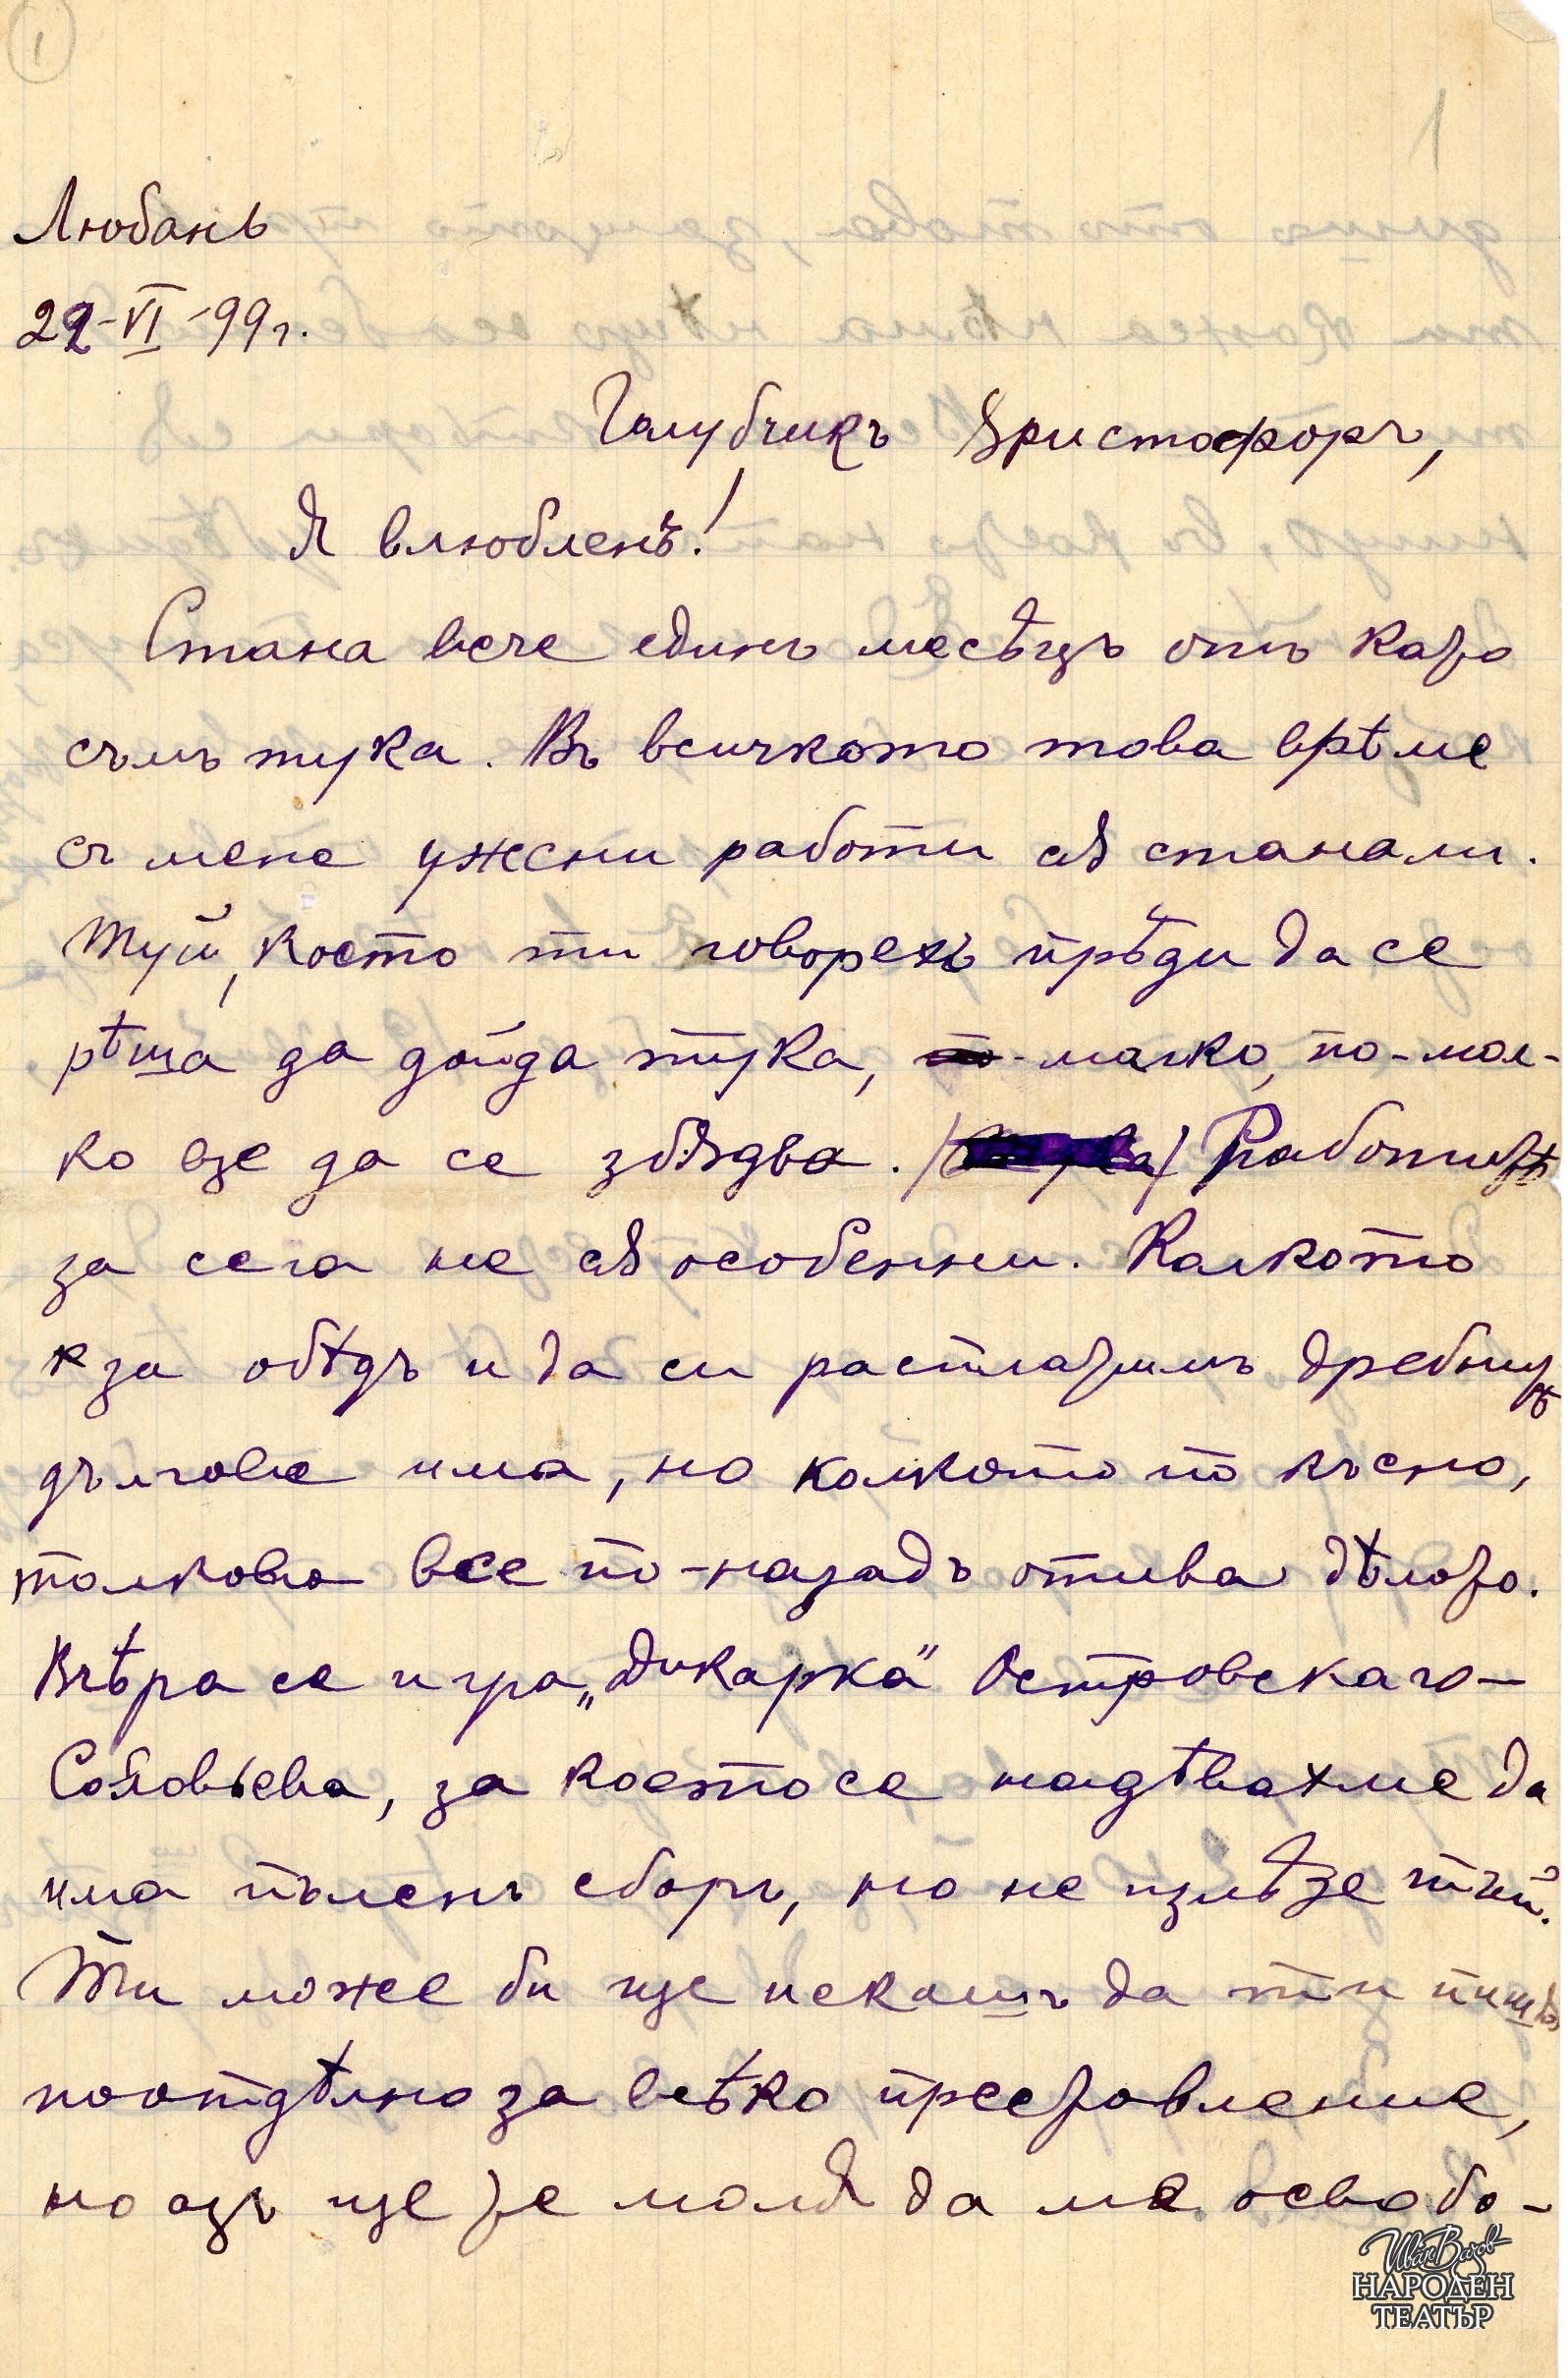 1
1
Любань
22-VI-99г.
Галубчикъ Христофоръ,
Я влюбленъ!
Стана вече единъ месѣцъ отъ како
съмъ тука. Въ всичкото това врѣме
съ мене ужсни работи сѫ станали.
Туй, което ти говорехъ прѣди да се
рѣша да дойда тука, малко, по-мал-
ко ще да се збѫдва. Работитѣ
за сега не сѫ особенни. Колкото
за обѣдъ и да си расплатимъ дребнитѣ
дългове има, но колкото по късно,
толкова все по-назадъ отива дѣлото.
Вчѣра се игра „Дикарка" Островскаго-
Соловьева, за което се надѣвахме да
има пъленъ сборъ, но не излѣзе тъй.
Ти може би ще искашъ да ти пишѫ
поотдѣлно за всѣко преставление,
но азъ ще те молѭ да ме освобо-
Иван Вазов
НАРОДЕН
ТЕАТЪР